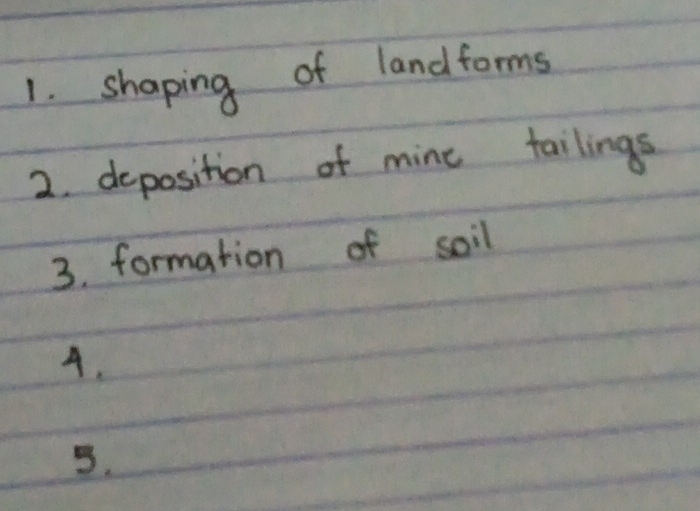 1. shaping of landforms
2. deposition of mine tailings
3. formation of soil
4.
5.